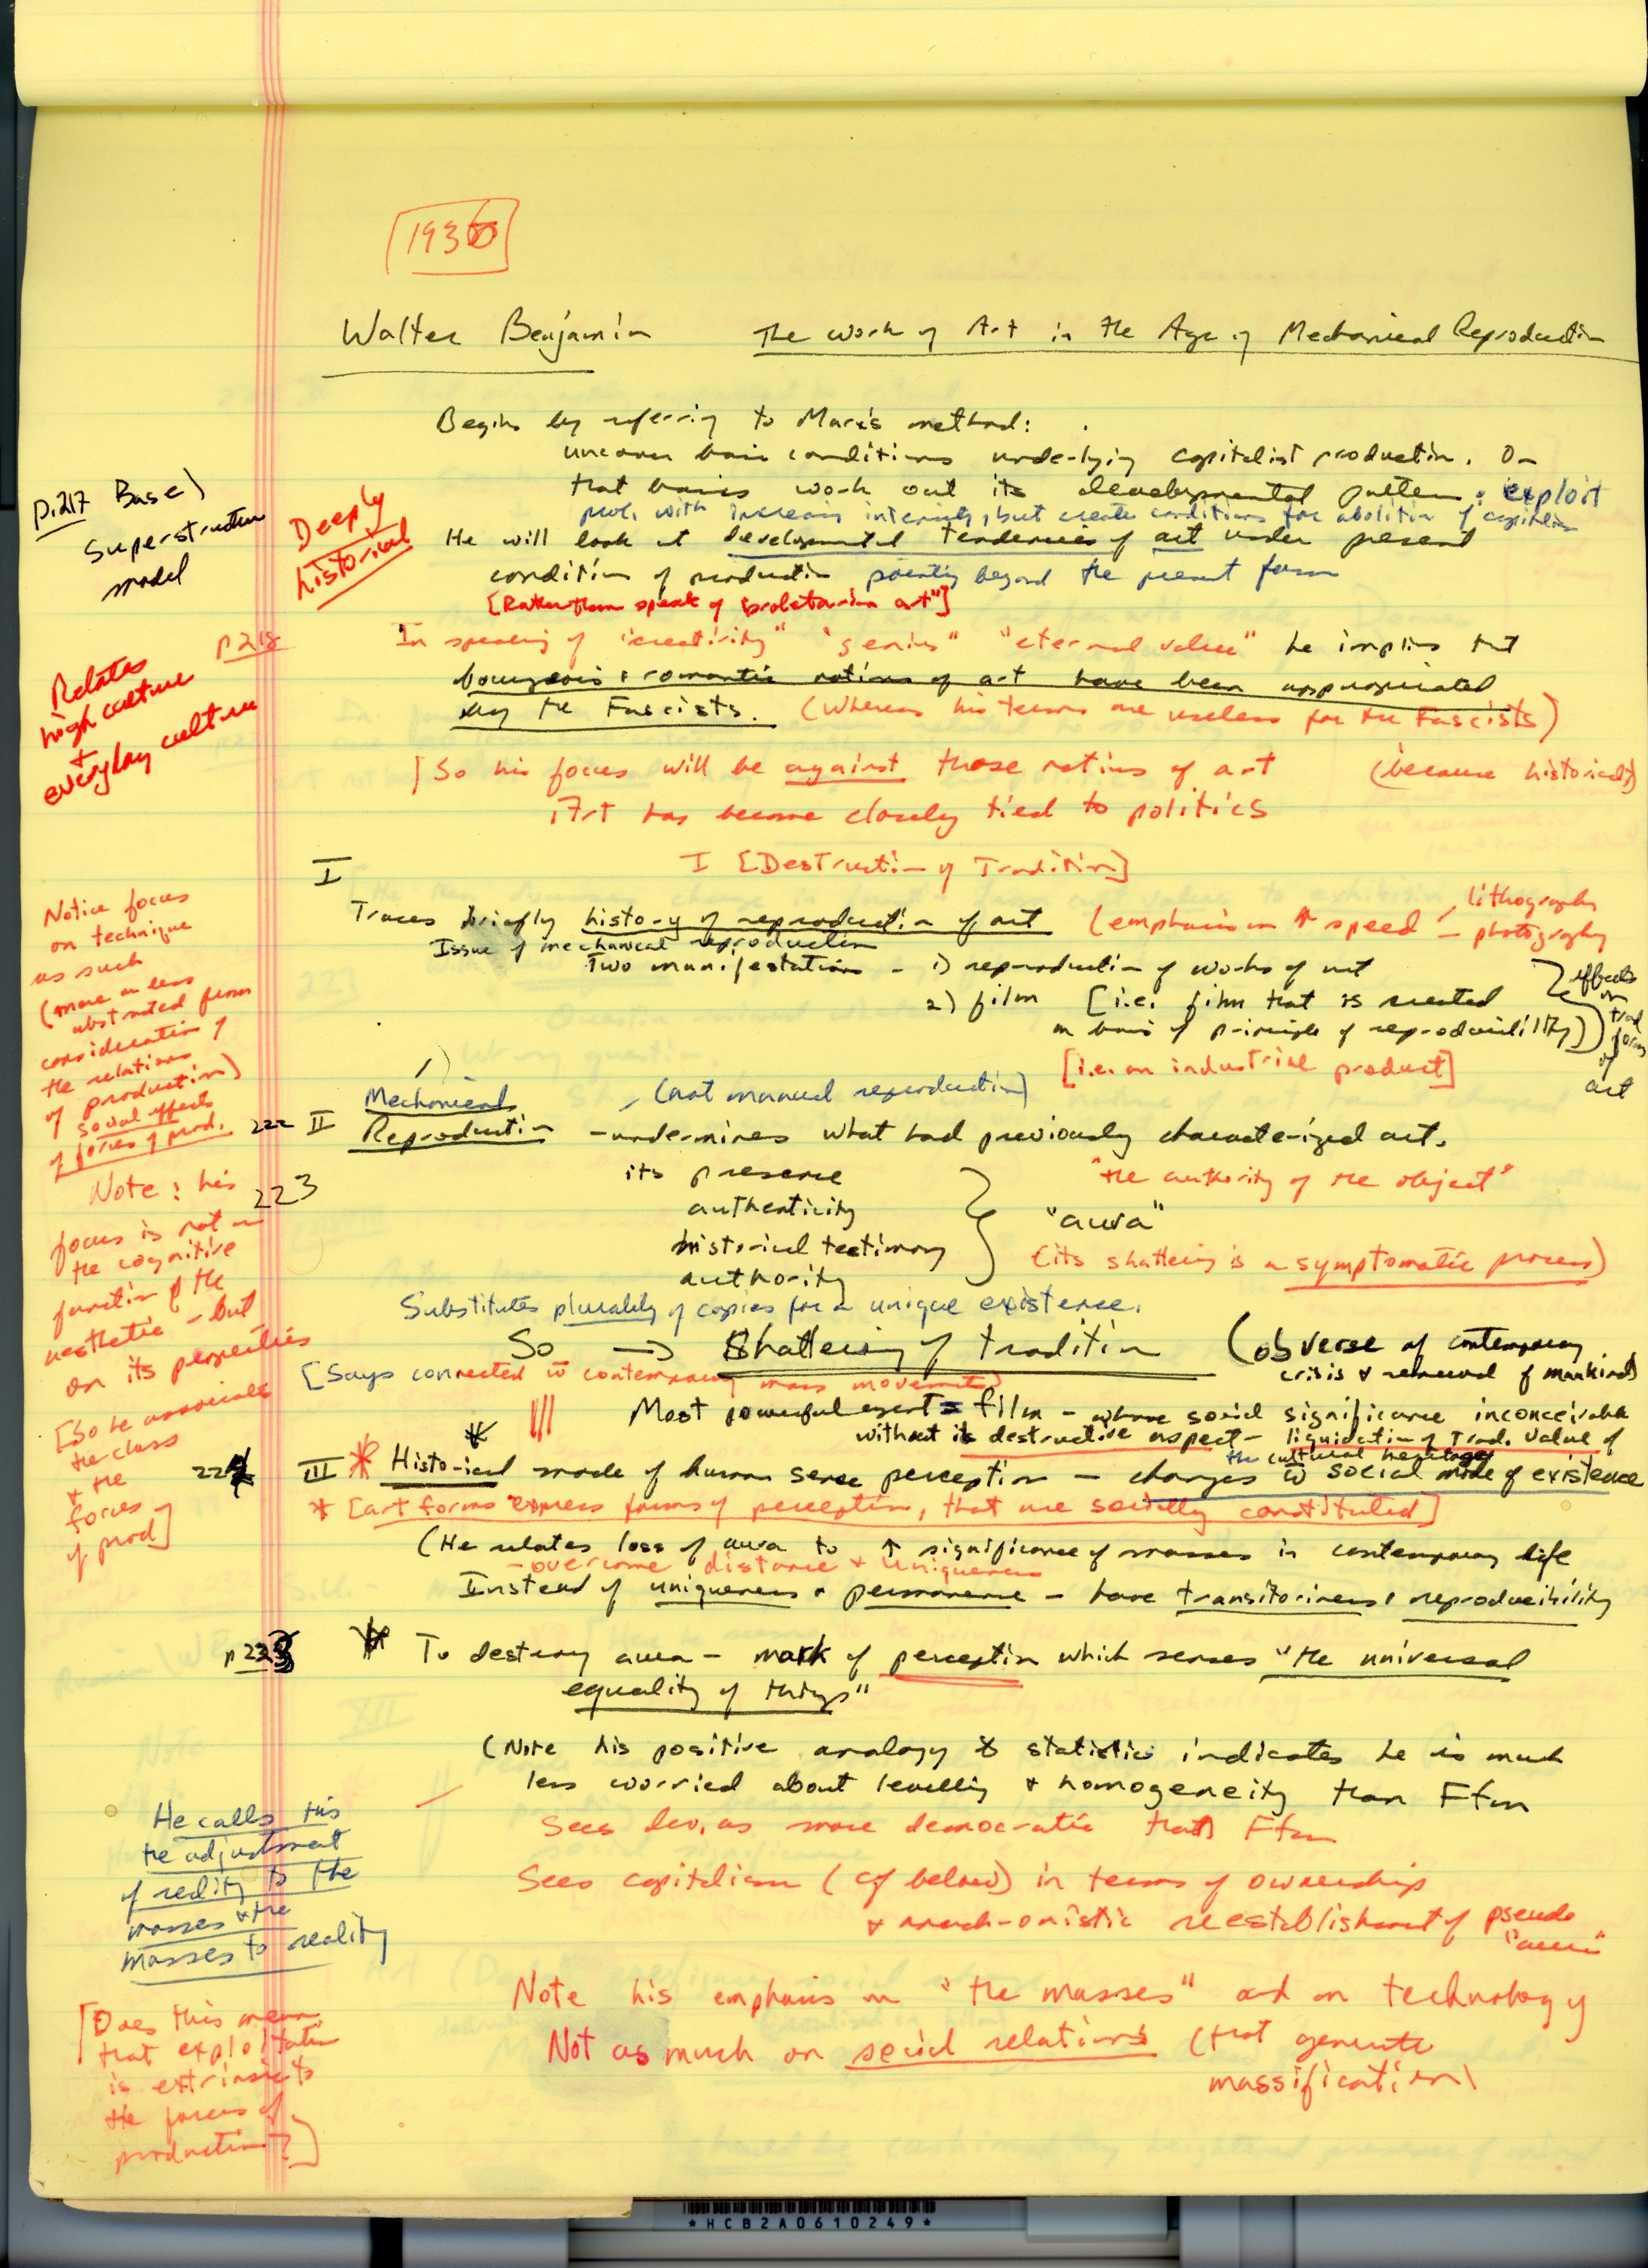 1936
Walter Benjamin The Work of Art in the Age of Mechanical Reproduction
Begins by referring to Marx's method:
uncover basic conditions underlying capitalist production. On
that basis work out its developmental pattern: exploit
prol. with increasing intensity, but create conditions for abolition of capitalism
p.217 Base)
Superstructure
model
Deeply
historical
He will look at developmental tendencies of art under present
condition of production pointing beyond the present form
[Rather than speak of "proletarian art"]
p 218
In speaking of "creativity" "genius" "eternal value" he implies that
bourgeois + romantic notions of art have been appropriated
by the Fascists. (Whereas his terms are useless for the Fascists)
Relates
high culture
+
everyday culture
[So his focus will be against those notions of art (because historically)
Art has become closely tied to politics
I
I [Destruction of Tradition]
Traces briefly history of reproduction of art (emphasis on ↑ speed - lithography
- photography
Issue of mechanical reproduction
Two manifestations - 1) reproduction of works of art
2) film [i.e. film that is created
on basis of principle of reproducibility)
effects
on
trad
forms
of
art
[i.e. an industrial product]
Notice focus
on technique
as such
(more or less
abstracted from
consideration of
the relations
of production)
social effects
of forces of prod.
1)
Mechanical (not manual reproduction)
222 II Reproduction - undermines what had previously characterized art.
223
its presence
authenticity
historical testimony
authority
"aura"
"the authority of the object"
(its shattering is a symptomatic process)
Note: his
focus is not on
the cognitive
function of the
aesthetic - but
on its properties
[So he associates
the class
+ the
forces of
prod]
Substitutes plurality of copies for a unique existence.
So → Shattering of tradition (obverse of contemporary
crisis & renewal of mankind)
[Says connected w contemporary mass movements]
Most powerful agent = film - whose social significance inconceivable
without its destructive aspect - liquidation of Trad. value of
the cultural heritage
III Historical mode of human sense perception - changes w social mode of existence
* [art forms express forms of perception, that are socially constituted]
(He relates loss of aura to ↑ significance of masses in contemporary life
- overcome distance + uniqueness
Instead of uniqueness + permanence - have transitoriness + reproducibility
p 223
To destroy aura - mark of perception which senses "the universal
equality of things"
(Note his positive analogy to statistics indicates he is much
less worried about levelling + homogeneity than Ffm
Sees dev. as more democratic than Ffm
He calls this
the adjustment
of reality to the
masses + the
masses to reality
Sees capitalism (cf below) in terms of ownership
+ anachronistic reestablishment of pseudo
"aura"
Note his emphasis on "the masses" and on technology
Not as much on social relations (that generate
massification)
[Does this mean
that exploitation
is extrinsic to
the forces of
production?]
*HCB2A0610249*